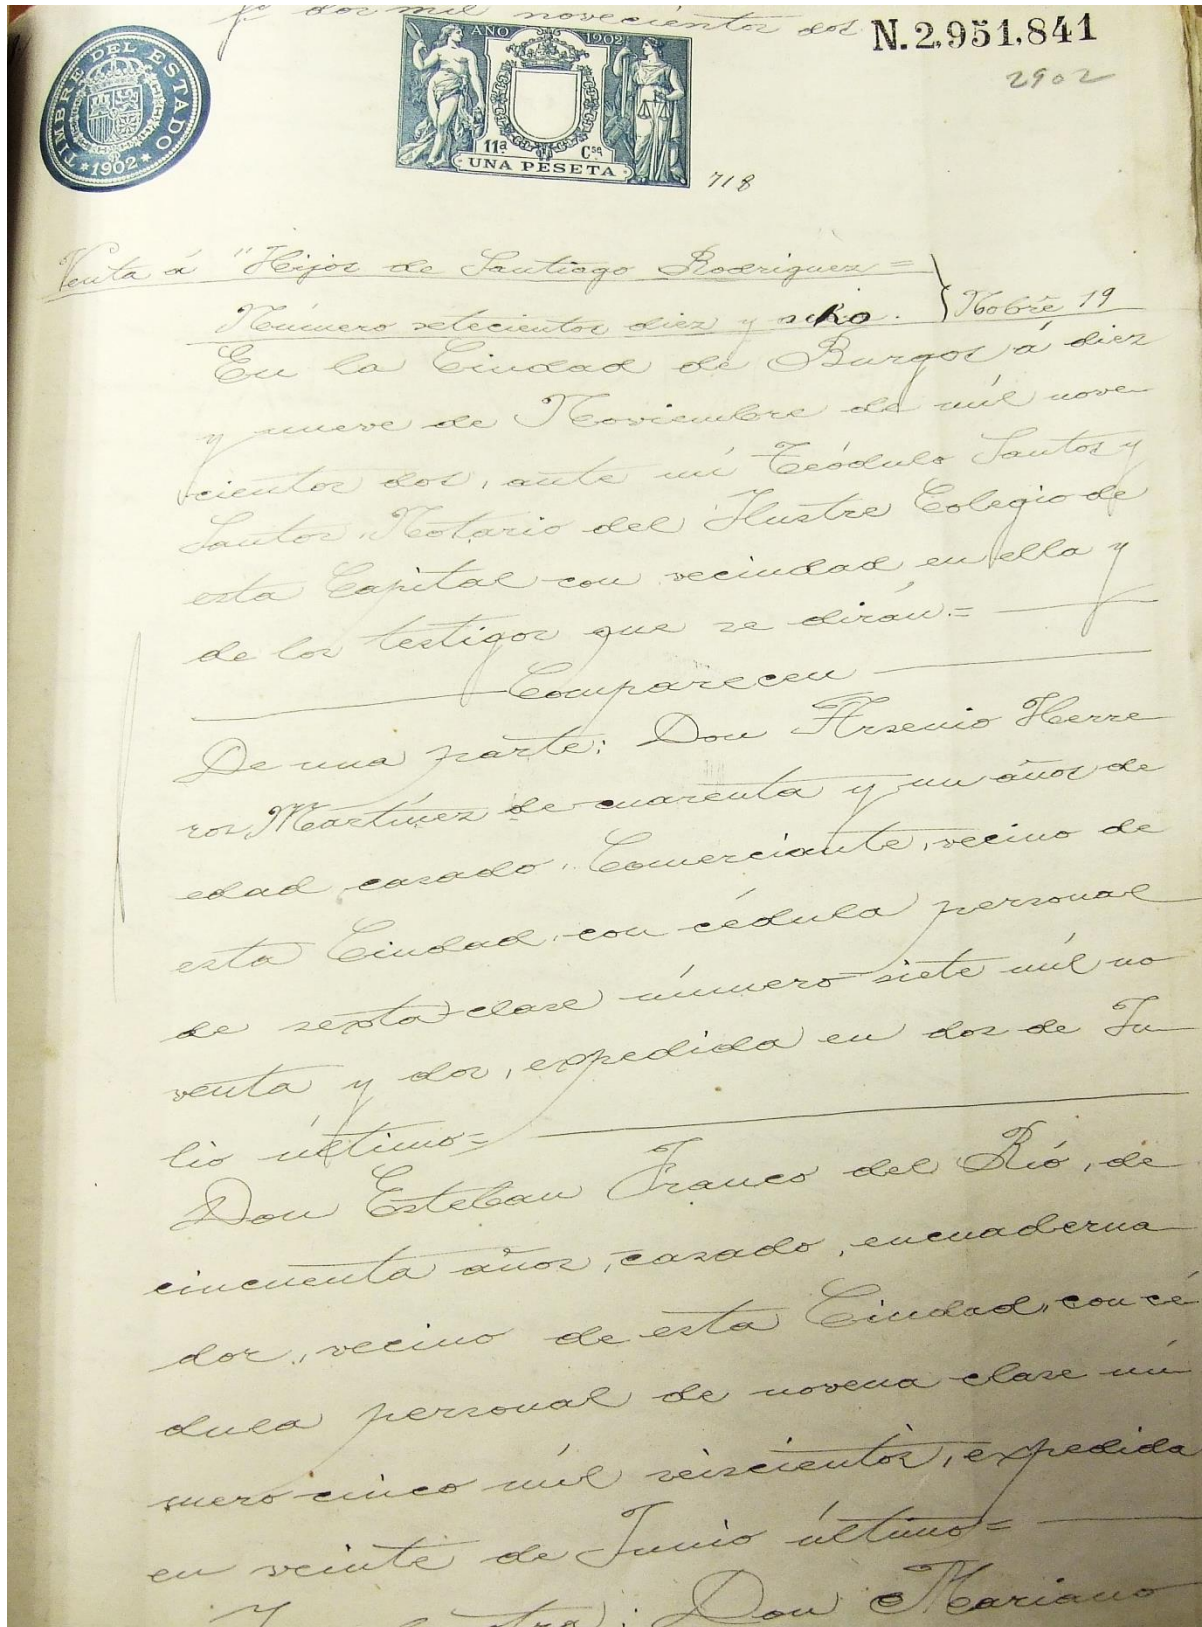 fº dos mil novecientos dos
N. 2,951,841
2902
TIMBRE DEL ESTADO
* 1902 *
AÑO 1902
11ª Cse
UNA PESETA
718
Venta á "Hijos de Santiago Rodriguez =
Número setecientos diez y ocho. } Nobre 19
En la Ciudad de Burgos á diez
y nueve de Noviembre de mil nove
cientos dos, ante mi Teódulo Santos y
Santos, Notario del Ilustre Colegio de
esta Capital con vecindad en ella y
de los testigos que se dirán =
Comparecen
De una parte: Don Arsenio Herre
ros Martínez de cuarenta y un años de
edad, casado, Comerciante, vecino de
esta Ciudad, con cédula personal
de sexta clase número siete mil no
venta y dos, expedida en dos de Ju
lio último =
Don Esteban Franco del Rió, de
cincuenta años, casado, encuaderna
dor, vecino de esta Ciudad, con cé
dula personal de novena clase nú
mero cinco mil seiscientos, expedida
en veinte de Junio último =
Don Mariano